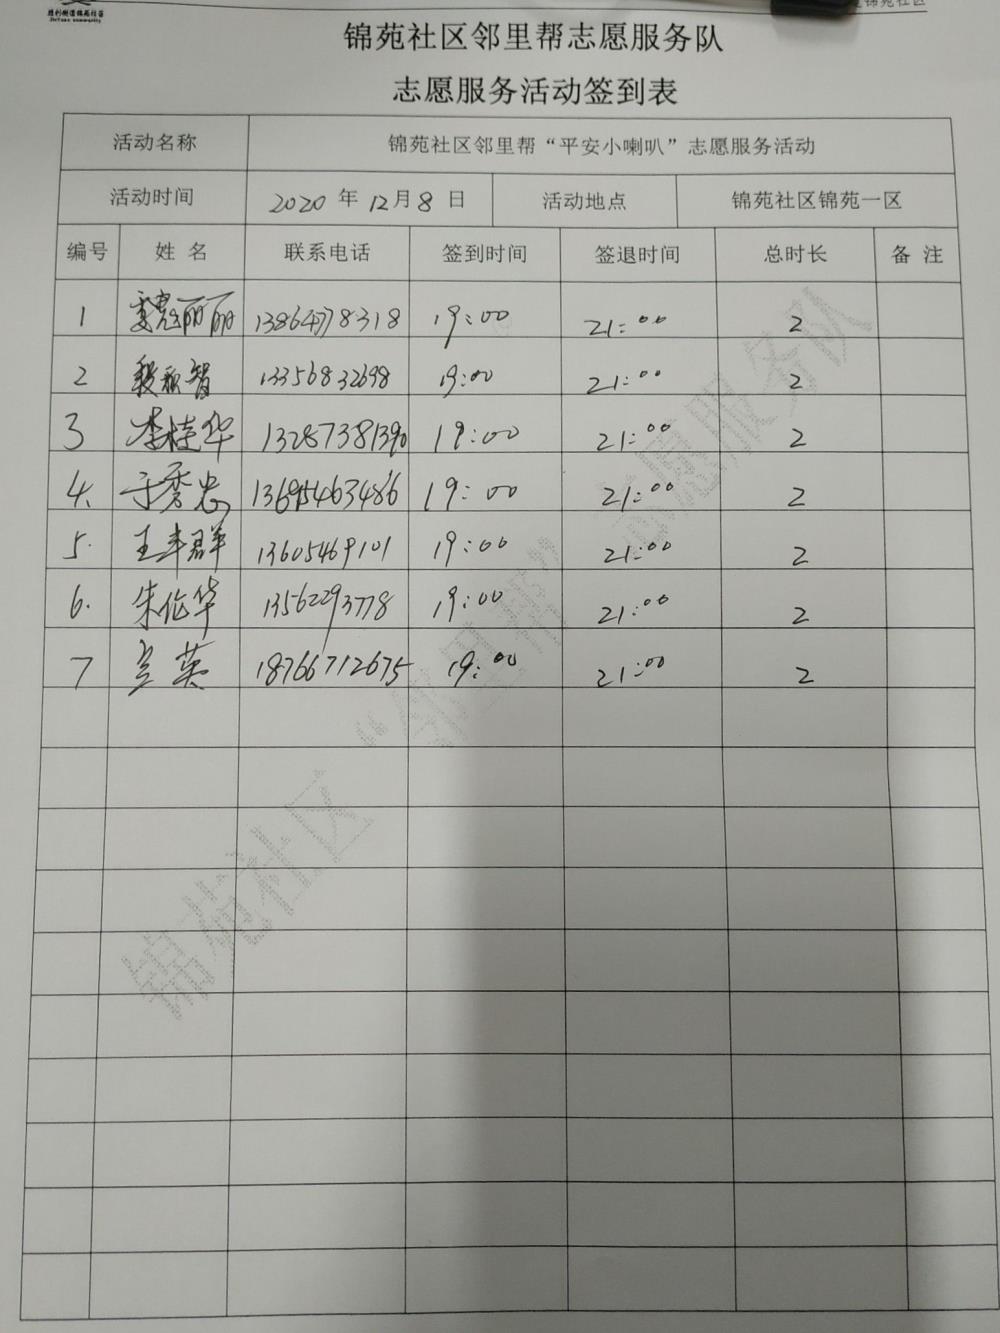 胜利街道锦苑社区
JinYuan community
锦苑社区
锦苑社区邻里帮志愿服务队
志愿服务活动签到表
活动名称 锦苑社区邻里帮“平安小喇叭”志愿服务活动
活动时间 2020 年 12月 8 日 活动地点 锦苑社区锦苑一区
编号 姓 名 联系电话 签到时间 签退时间 总时长 备 注
1 魏丽丽 19:00 21:00 2
2 13356832698 19:00 21:00 2
3 李桂华 13287381390 19:00 21:00 2
4. 于秀忠 13695463486 19:00 21:00 2
5. 王丰群 13605469101 19:00 21:00 2
6. 朱作华 13562293778 19:00 21:00 2
7 英 18766712675 19:00 21:00 2
锦苑社区“邻里帮”志愿服务队